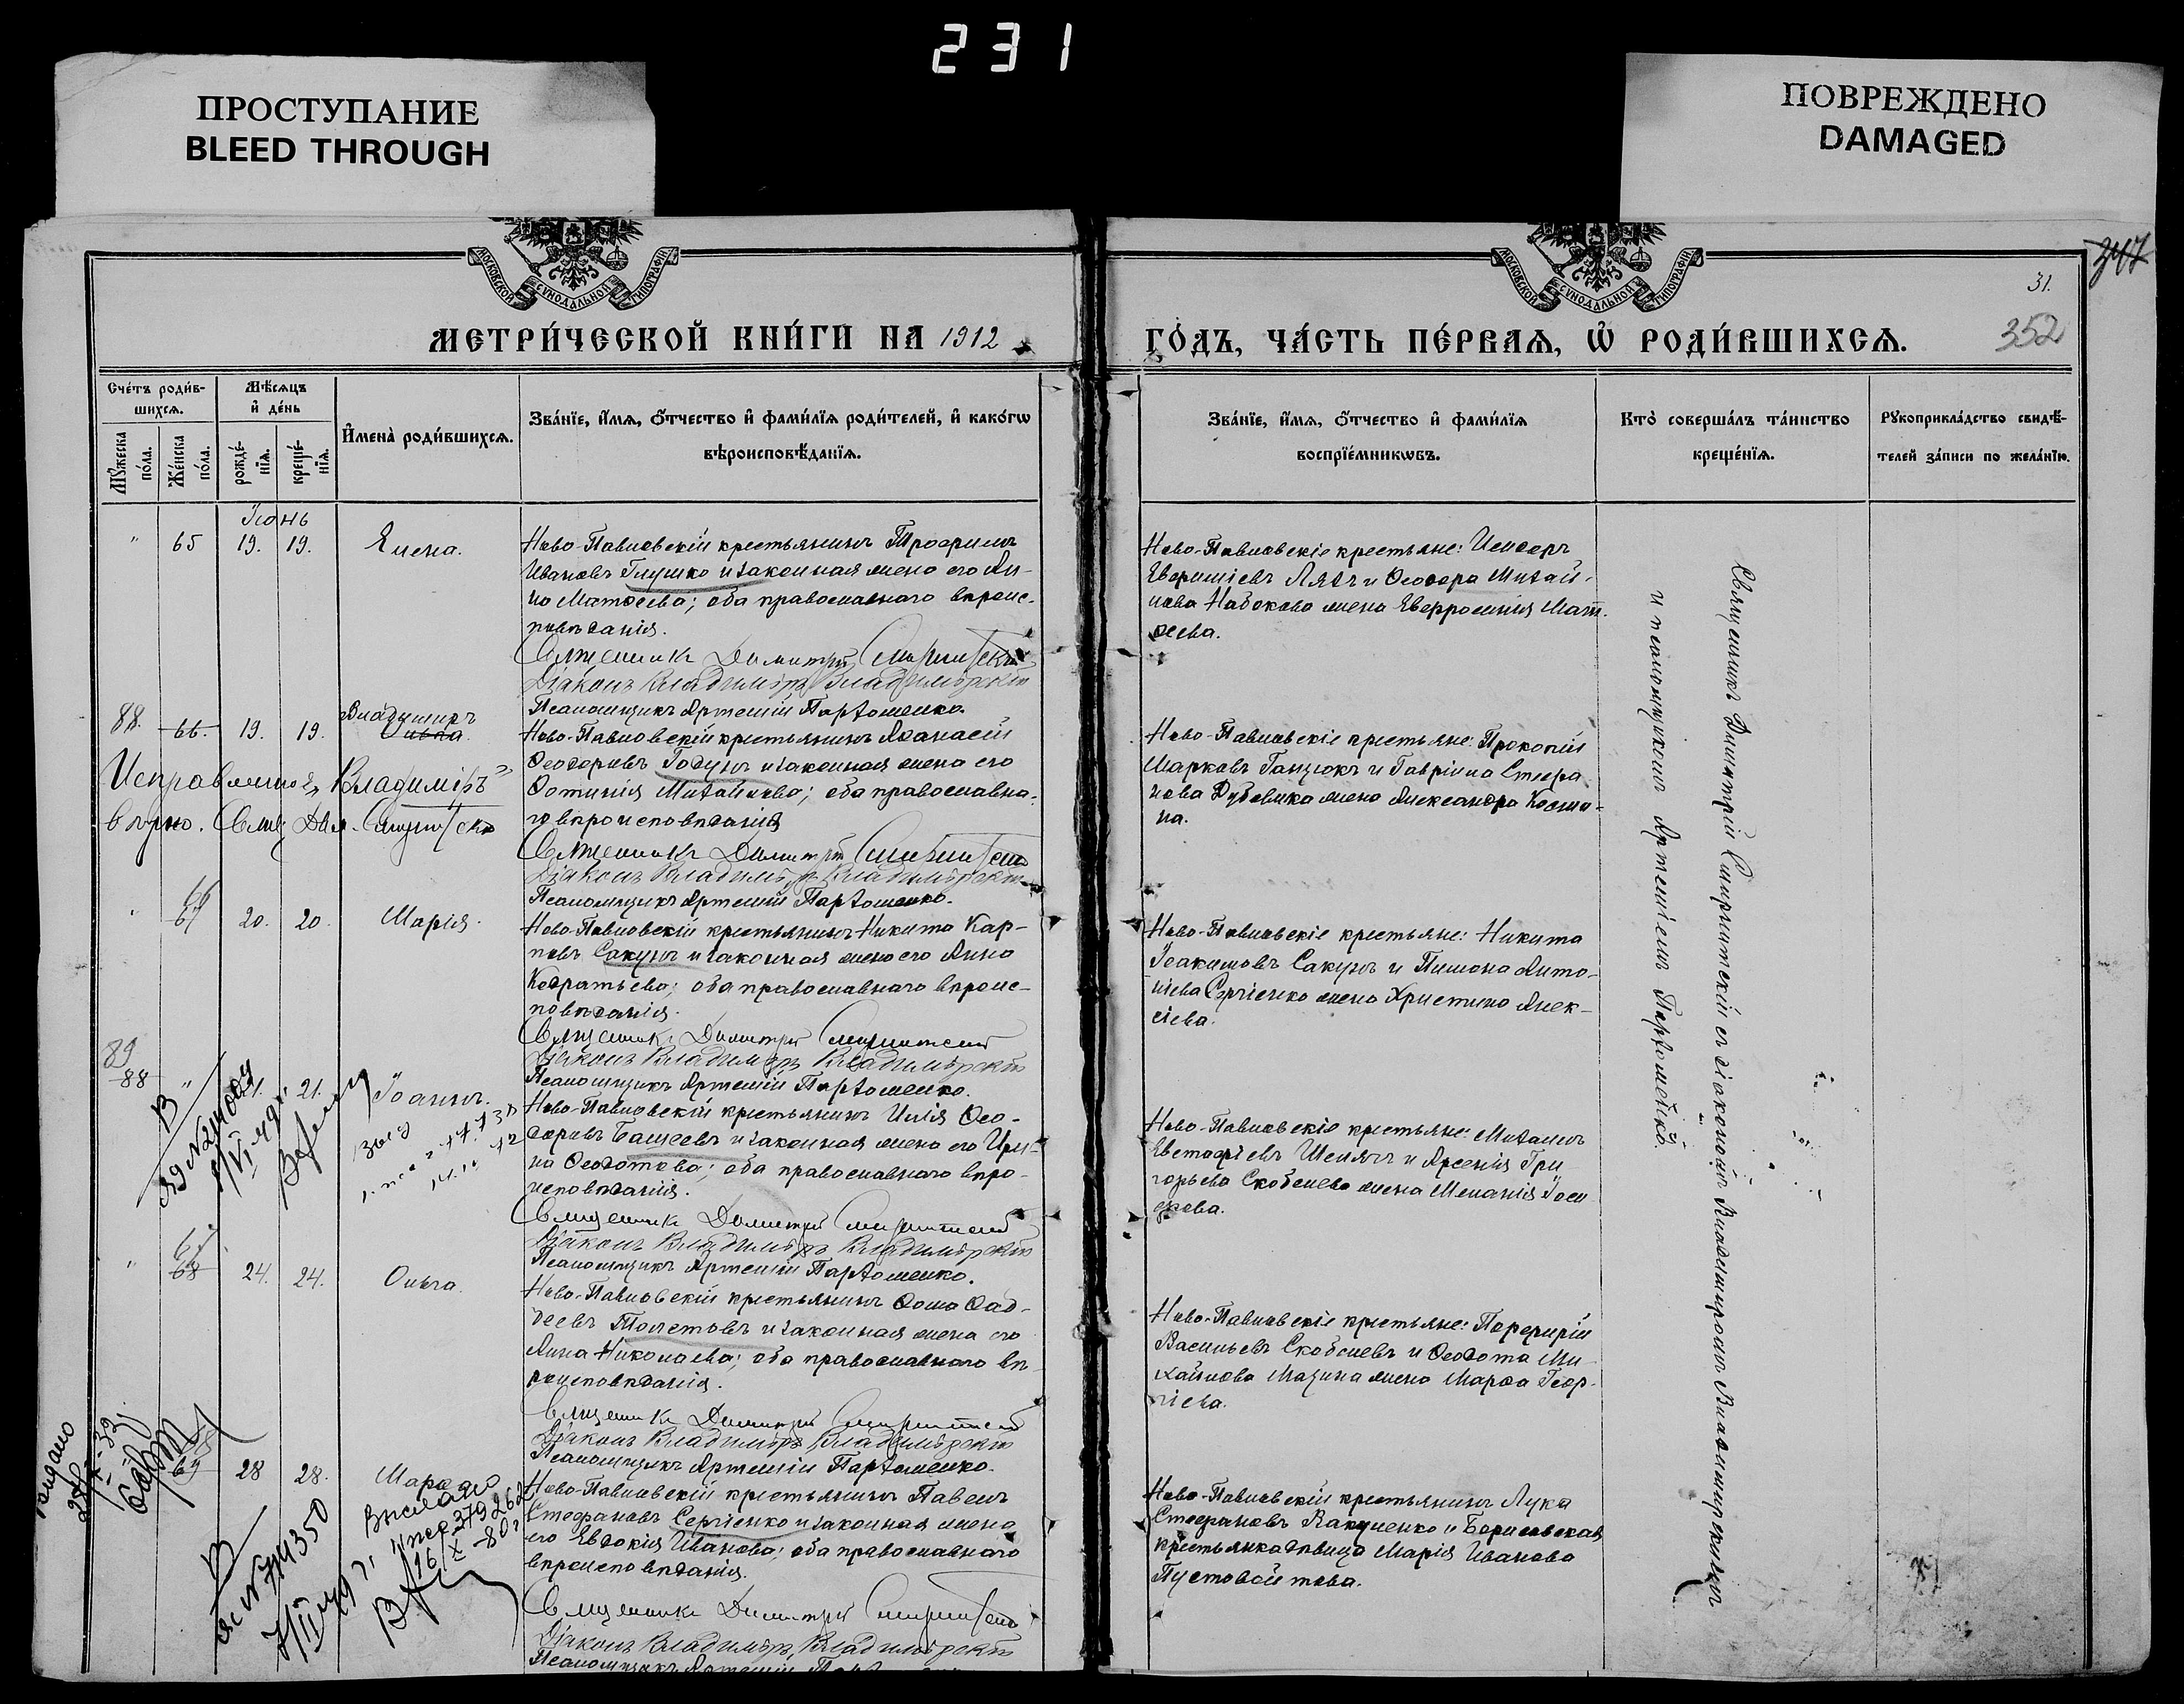 231
ПРОСТУПАНИЕ
BLEED THROUGH
ПОВРЕЖДЕНО
DAMAGED
МОСКОВСКОЙ СѴНОДАЛЬНОЙ ТИПОГРАФІИ
МОСКОВСКОЙ СѴНОДАЛЬНОЙ ТИПОГРАФІИ
347
31.
352
МЕТРИ́ЧЕСКОЙ КНИ́ГИ НА 1912
ГО́ДЪ, ЧА́СТЬ ПЕ́РВАѦ, Ѡ҆ РОДИ́ВШИХСѦ.
Сче́тъ роди́в-
шихсѧ.
Мѣ́сѧцъ
и҆ де́нь
Мꙋ́жеска
по́ла.
Же́нска
по́ла.
рожде́-
нїѧ.
креще́-
нїѧ.
И҆мена̀ роди́вшихсѧ.
Зва́нїе, и҆́мѧ, ѻ҆́тчество и҆ фами́лїѧ роди́телей, и҆ како́гѡ
вѣроисповѣ́данїѧ.
Зва́нїе, и҆́мѧ, ѻ҆́тчество и҆ фами́лїѧ
воспрїе́мникѡвъ.
Кто̀ соверша́лъ та́инство
креще́нїѧ.
Рꙋкоприкла́дство свидѣ́-
телей за́писи по жела́нїю.
Іюнь
" 65 19. 19. Елена.
Ново-Павловскій крестьянинъ Трофимъ
Ивановъ Глушко и законная жена его Ан-
на Матѳеева; оба православнаго вѣроис-
повѣданія.
Священникъ Димитрій
Діаконъ Владиміръ Владимірскій
Псаломщикъ Артемій Парѳоменко.
Ново-Павловскіе крестьяне:
Лядъ и Ѳеодора Михай-
лова Набокова жена Евфросинія Мат-
ѳеева.
88. 66. 19. 19. Владиміръ
Ново-Павловскій крестьянинъ Аѳанасій
Ѳеодоровъ Годунъ и законная жена его
Фотинія Михайлова; оба православна-
го вѣроисповѣданія
Исправленное "Владиміръ"
вѣрно. Свящ. Дим.
Священникъ Димитрій
Діаконъ Владиміръ Владимірскій
Псаломщикъ Артемій Парѳоменко.
Ново-Павловскіе крестьяне: Прокопій
Марковъ Ганзюкъ и Гавріила Стефа
нова жена Александра Косми-
на.
66
67 20. 20. Марія.
Ново-Павловскій крестьянинъ Никита Кар-
повъ Сакунъ и законная жена его Анна
Кодратьева; оба православнаго вѣроис-
повѣданія.
Священникъ Димитрій
Діаконъ Владиміръ Владимірскій
Псаломщикъ Артемій Парѳоменко.
Ново-Павловскіе крестьяне: Никита
Іоакимовъ Сакунъ и Пимона Анто-
ніева Сергіенко жена Христина Алек-
сіева.
89
88 " 21. 21. Іоаннъ.
Ново-Павловскій крестьянинъ Илія Ѳео-
доровъ Бащеевъ и законная жена его Ири-
на Ѳеодотова; оба православнаго вѣро-
исповѣданія.
Священникъ Димитрій
Діаконъ Владиміръ Владимірскій
Псаломщикъ Артемій Парѳоменко.
Ново-Павловскіе крестьяне: Михаилъ
Евстафіевъ Шеплягъ и Арсенія Гри-
горьева Скобелева жена Меланія Іоси-
фова.
67
68 24. 24. Ольга.
Ново-Павловскій крестьянинъ Ѳома Ѳад-
деевъ Толстовъ и законная жена его
Анна Николаева; оба православнаго вѣ-
роисповѣданія.
Священникъ Димитрій
Діаконъ Владиміръ Владимірскій
Псаломщикъ Артемій Парѳоменко.
Ново-Павловскіе крестьяне: Порфирій
Васильевъ Скобелевъ и Ѳеодота Ми-
хайлова Мазина жена Марѳа Геор-
гіева.
68
69 28 28. Марѳа
Ново-Павловскій крестьянинъ Павелъ
Стефановъ Сергіенко и законная жена
его Евдокія Иванова; оба православнаго
вѣроисповѣданія.
Священникъ Димитрій
Діаконъ Владиміръ Владимірскій
Псаломщикъ Артемій
Ново-Павловскій крестьянинъ Лука
Стефановъ Вакуленко и Борисовская
крестьянка дѣвица Марія Иванова
Пустовойтова.
Выслано
Священникъ Димитрій съ діакономъ Владиміромъ Владимірскимъ
и псаломщикомъ Артеміемъ Парѳоменко.